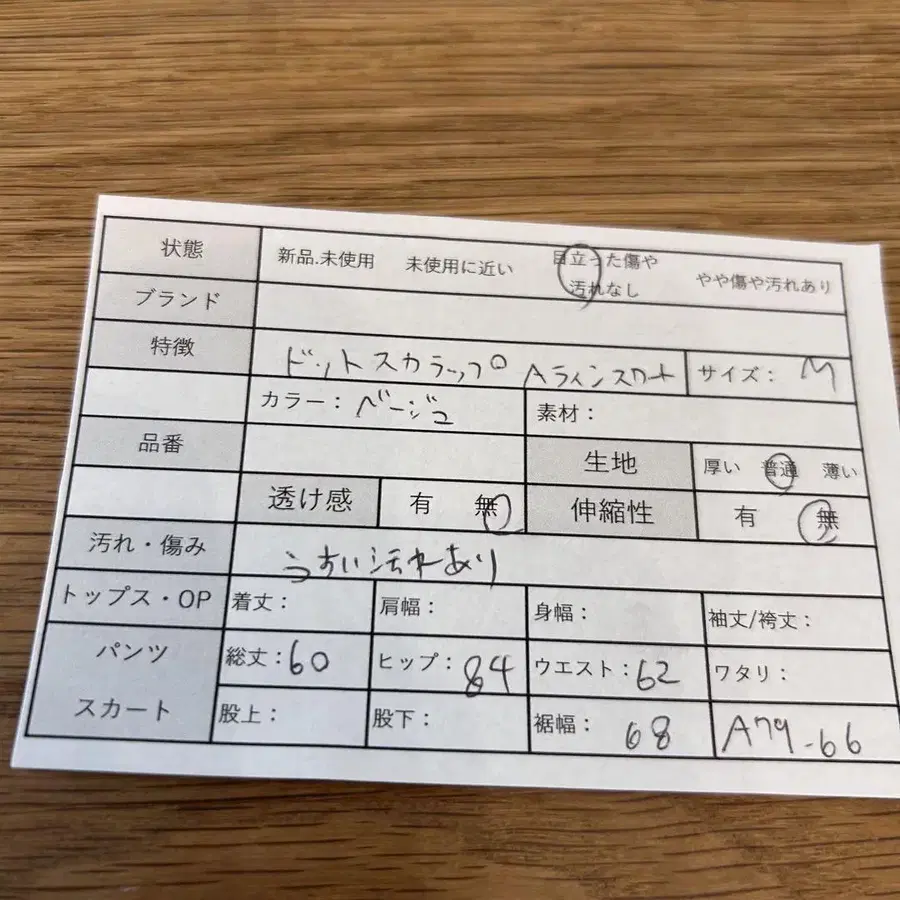 状態 新品.未使用 未使用に近い 目立った傷や汚れなし やや傷や汚れあり
ブランド
特徴 ドットスカラップ Aラインスカート サイズ： M
カラー： ベージュ 素材：
品番 生地 厚い 普通 薄い
透け感 有 無 伸縮性 有 無
汚れ・傷み うすい汚れあり
トップス・OP 着丈： 肩幅： 身幅： 袖丈/裄丈：
パンツ 総丈：60 ヒップ：84 ウエスト：62 ワタリ：
スカート 股上： 股下： 裾幅： 68 A79-66